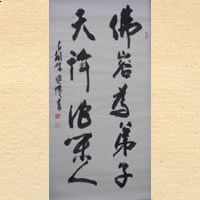 佛容為弟子
天許作閒人